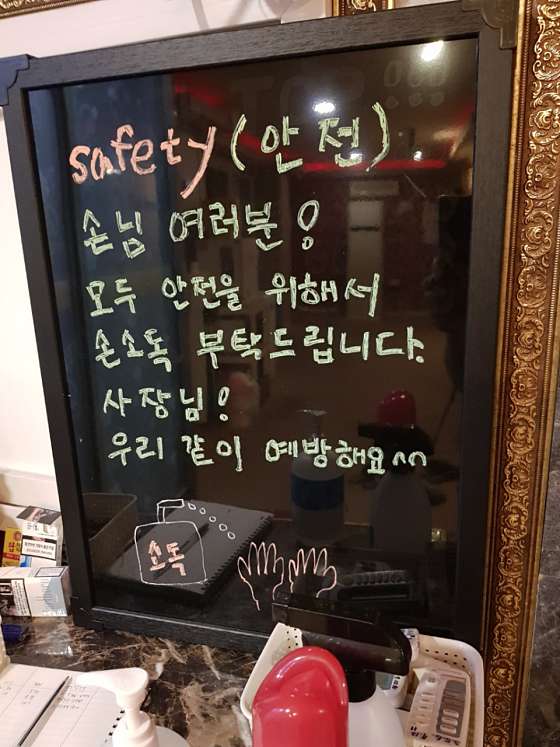 safety (안전)
손님 여러분!
모두 안전을 위해서
손소독 부탁드립니다.
사장님!
우리 같이 예방해요^^
소독